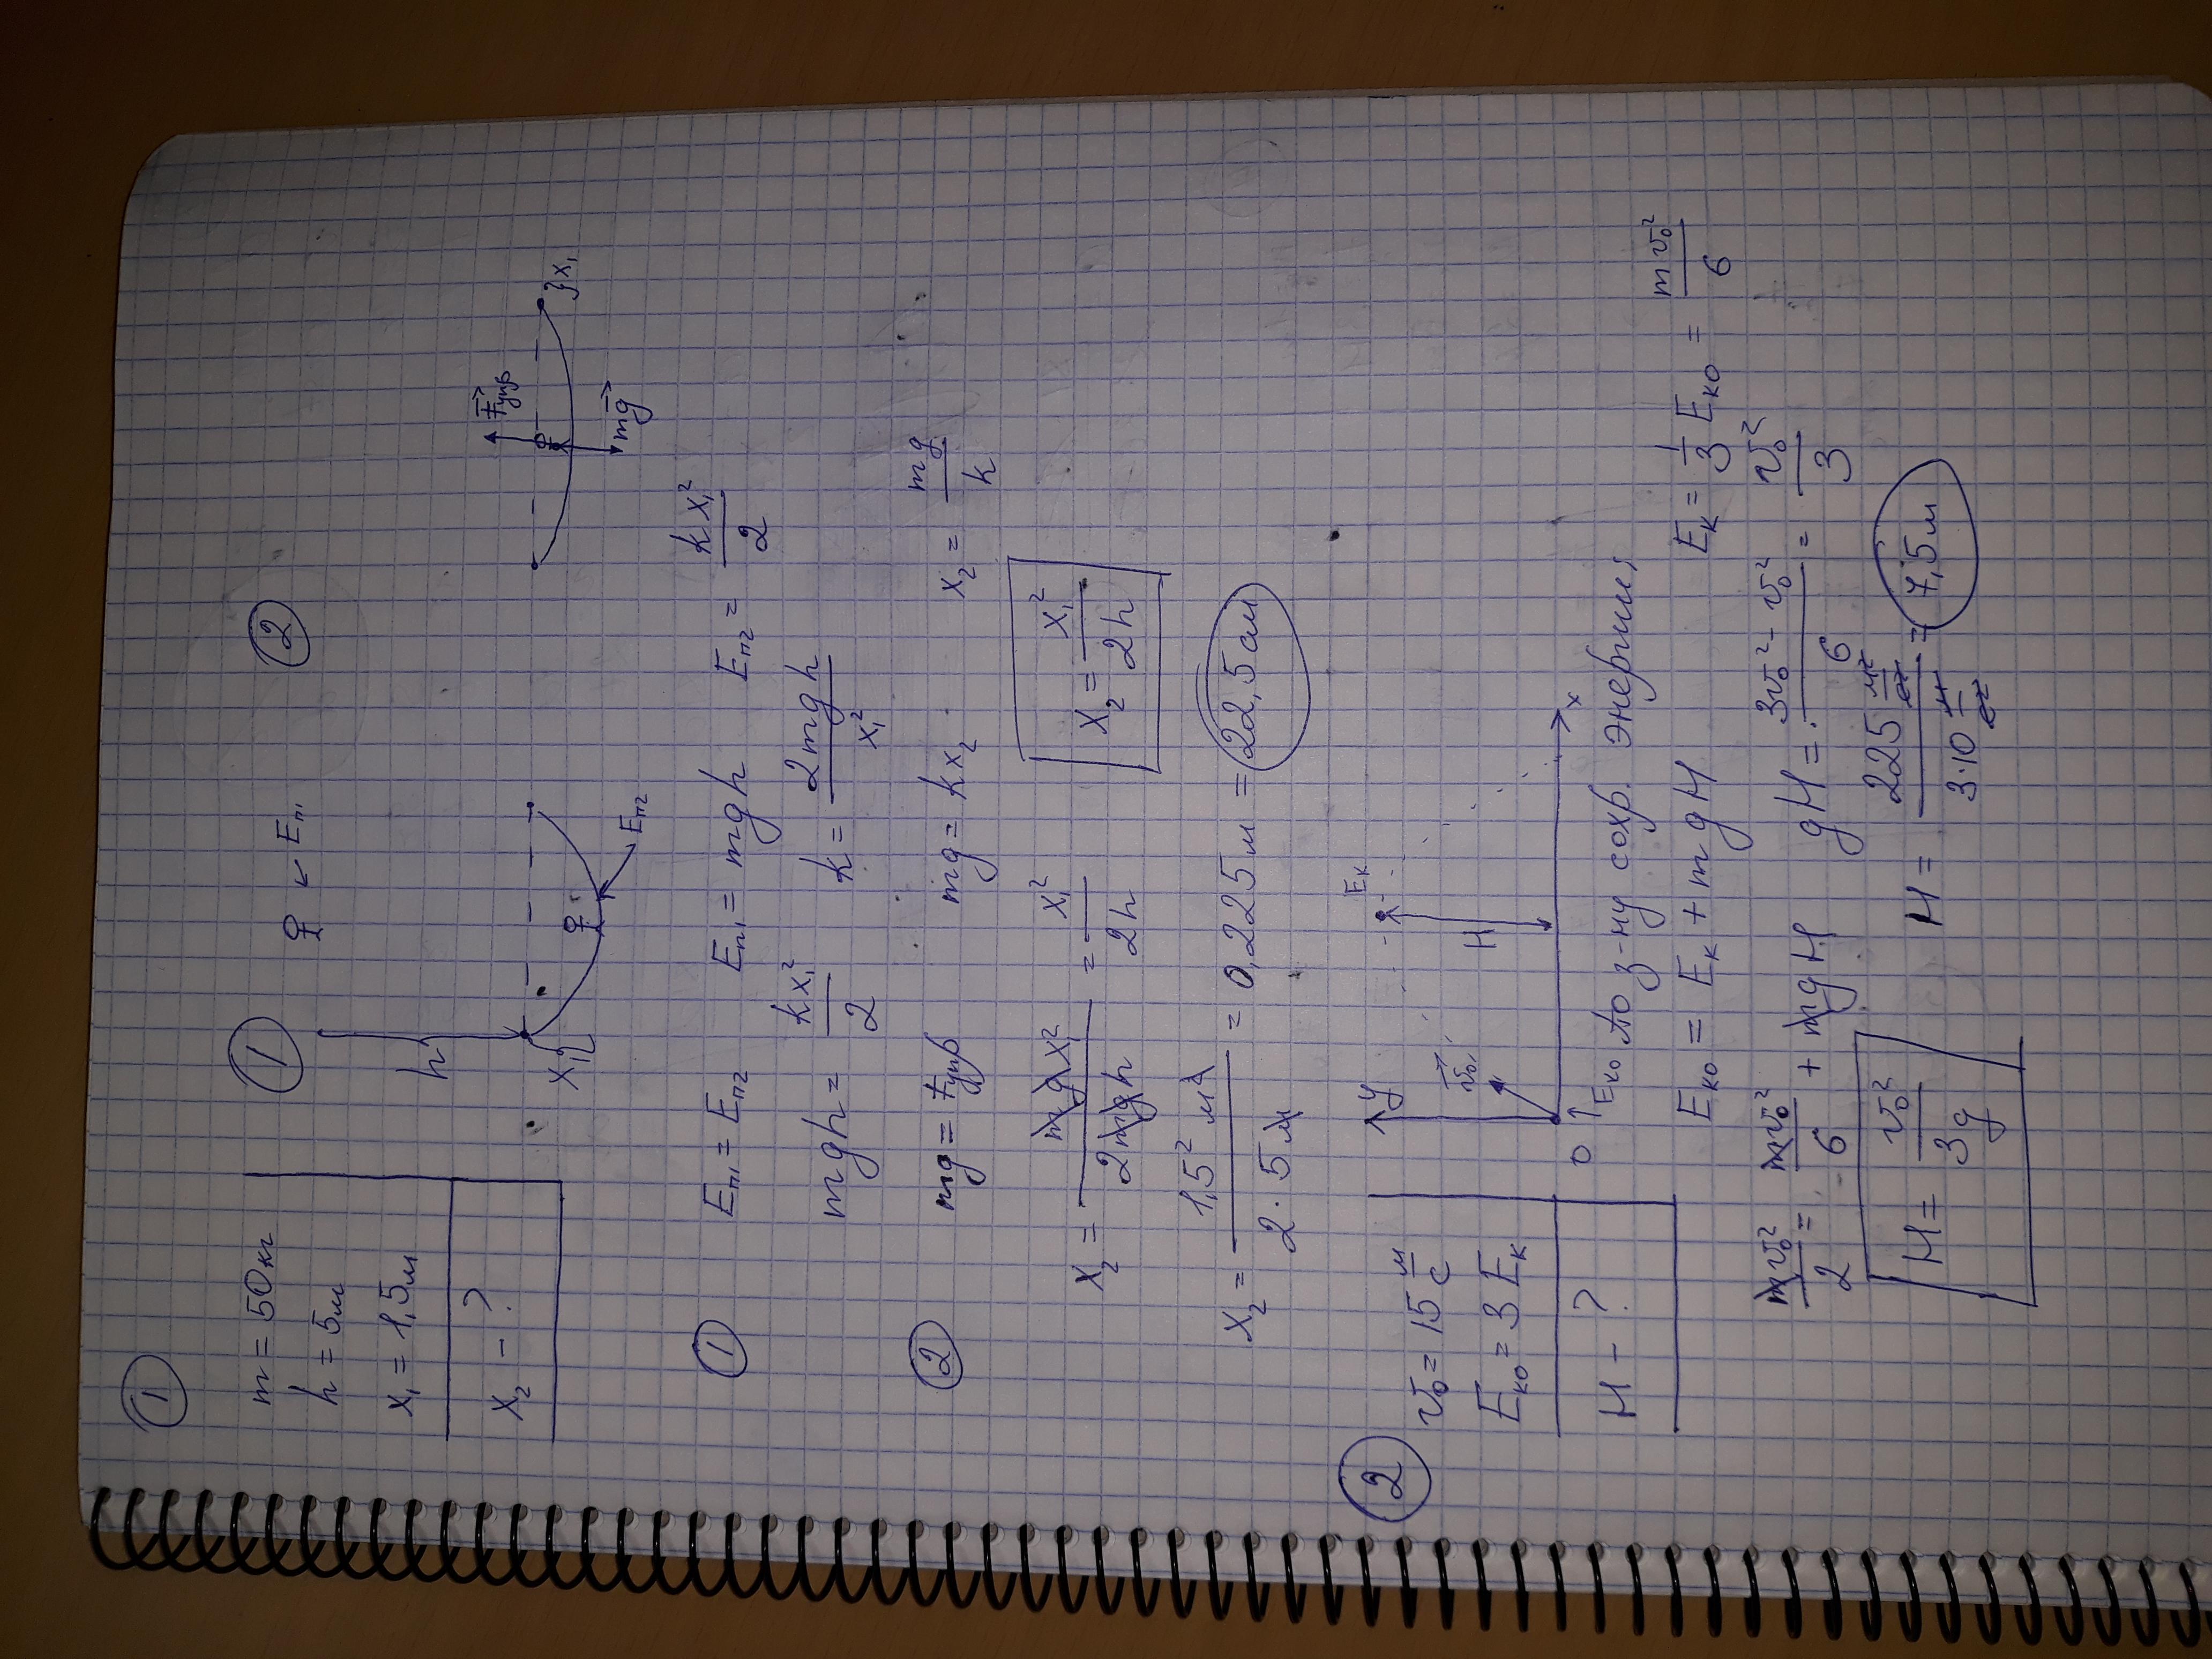 ①
m = 50 кг
h = 5 м
x₁ = 1,5 м
x₂ - ?
①
h
x₁
Eп₁
Eп₂
②
F⃗упр
mg⃗
x₁
① Eп₁ = Eп₂ Eп₁ = mgh Eп₂ = kx₁²/2
mgh = kx₁²/2 k = 2mgh/x₁²
② mg = Fупр mg = kx₂ x₂ = mg/k
x₂ = mgx₁²/2mgh = x₁²/2h x₂ = x₁²/2h
x₂ = 1,5² м²/2·5м = 0,225м = 22,5 см
②
v₀ = 15 м/с
Eк₀ = 3 Eк
H - ?
y
v⃗₀
H
Eк
0
x
Eк₀
По з-ну сохр. энергии;
Eк₀ = Eк + mgH Eк = 1/3 Eк₀ = mv₀²/6
mv₀²/2 = mv₀²/6 + mgH gH = 3v₀² - v₀²/6 = v₀²/3
H = v₀²/3g H = 225 м²/с²/3·10 м/с² = 7,5 м